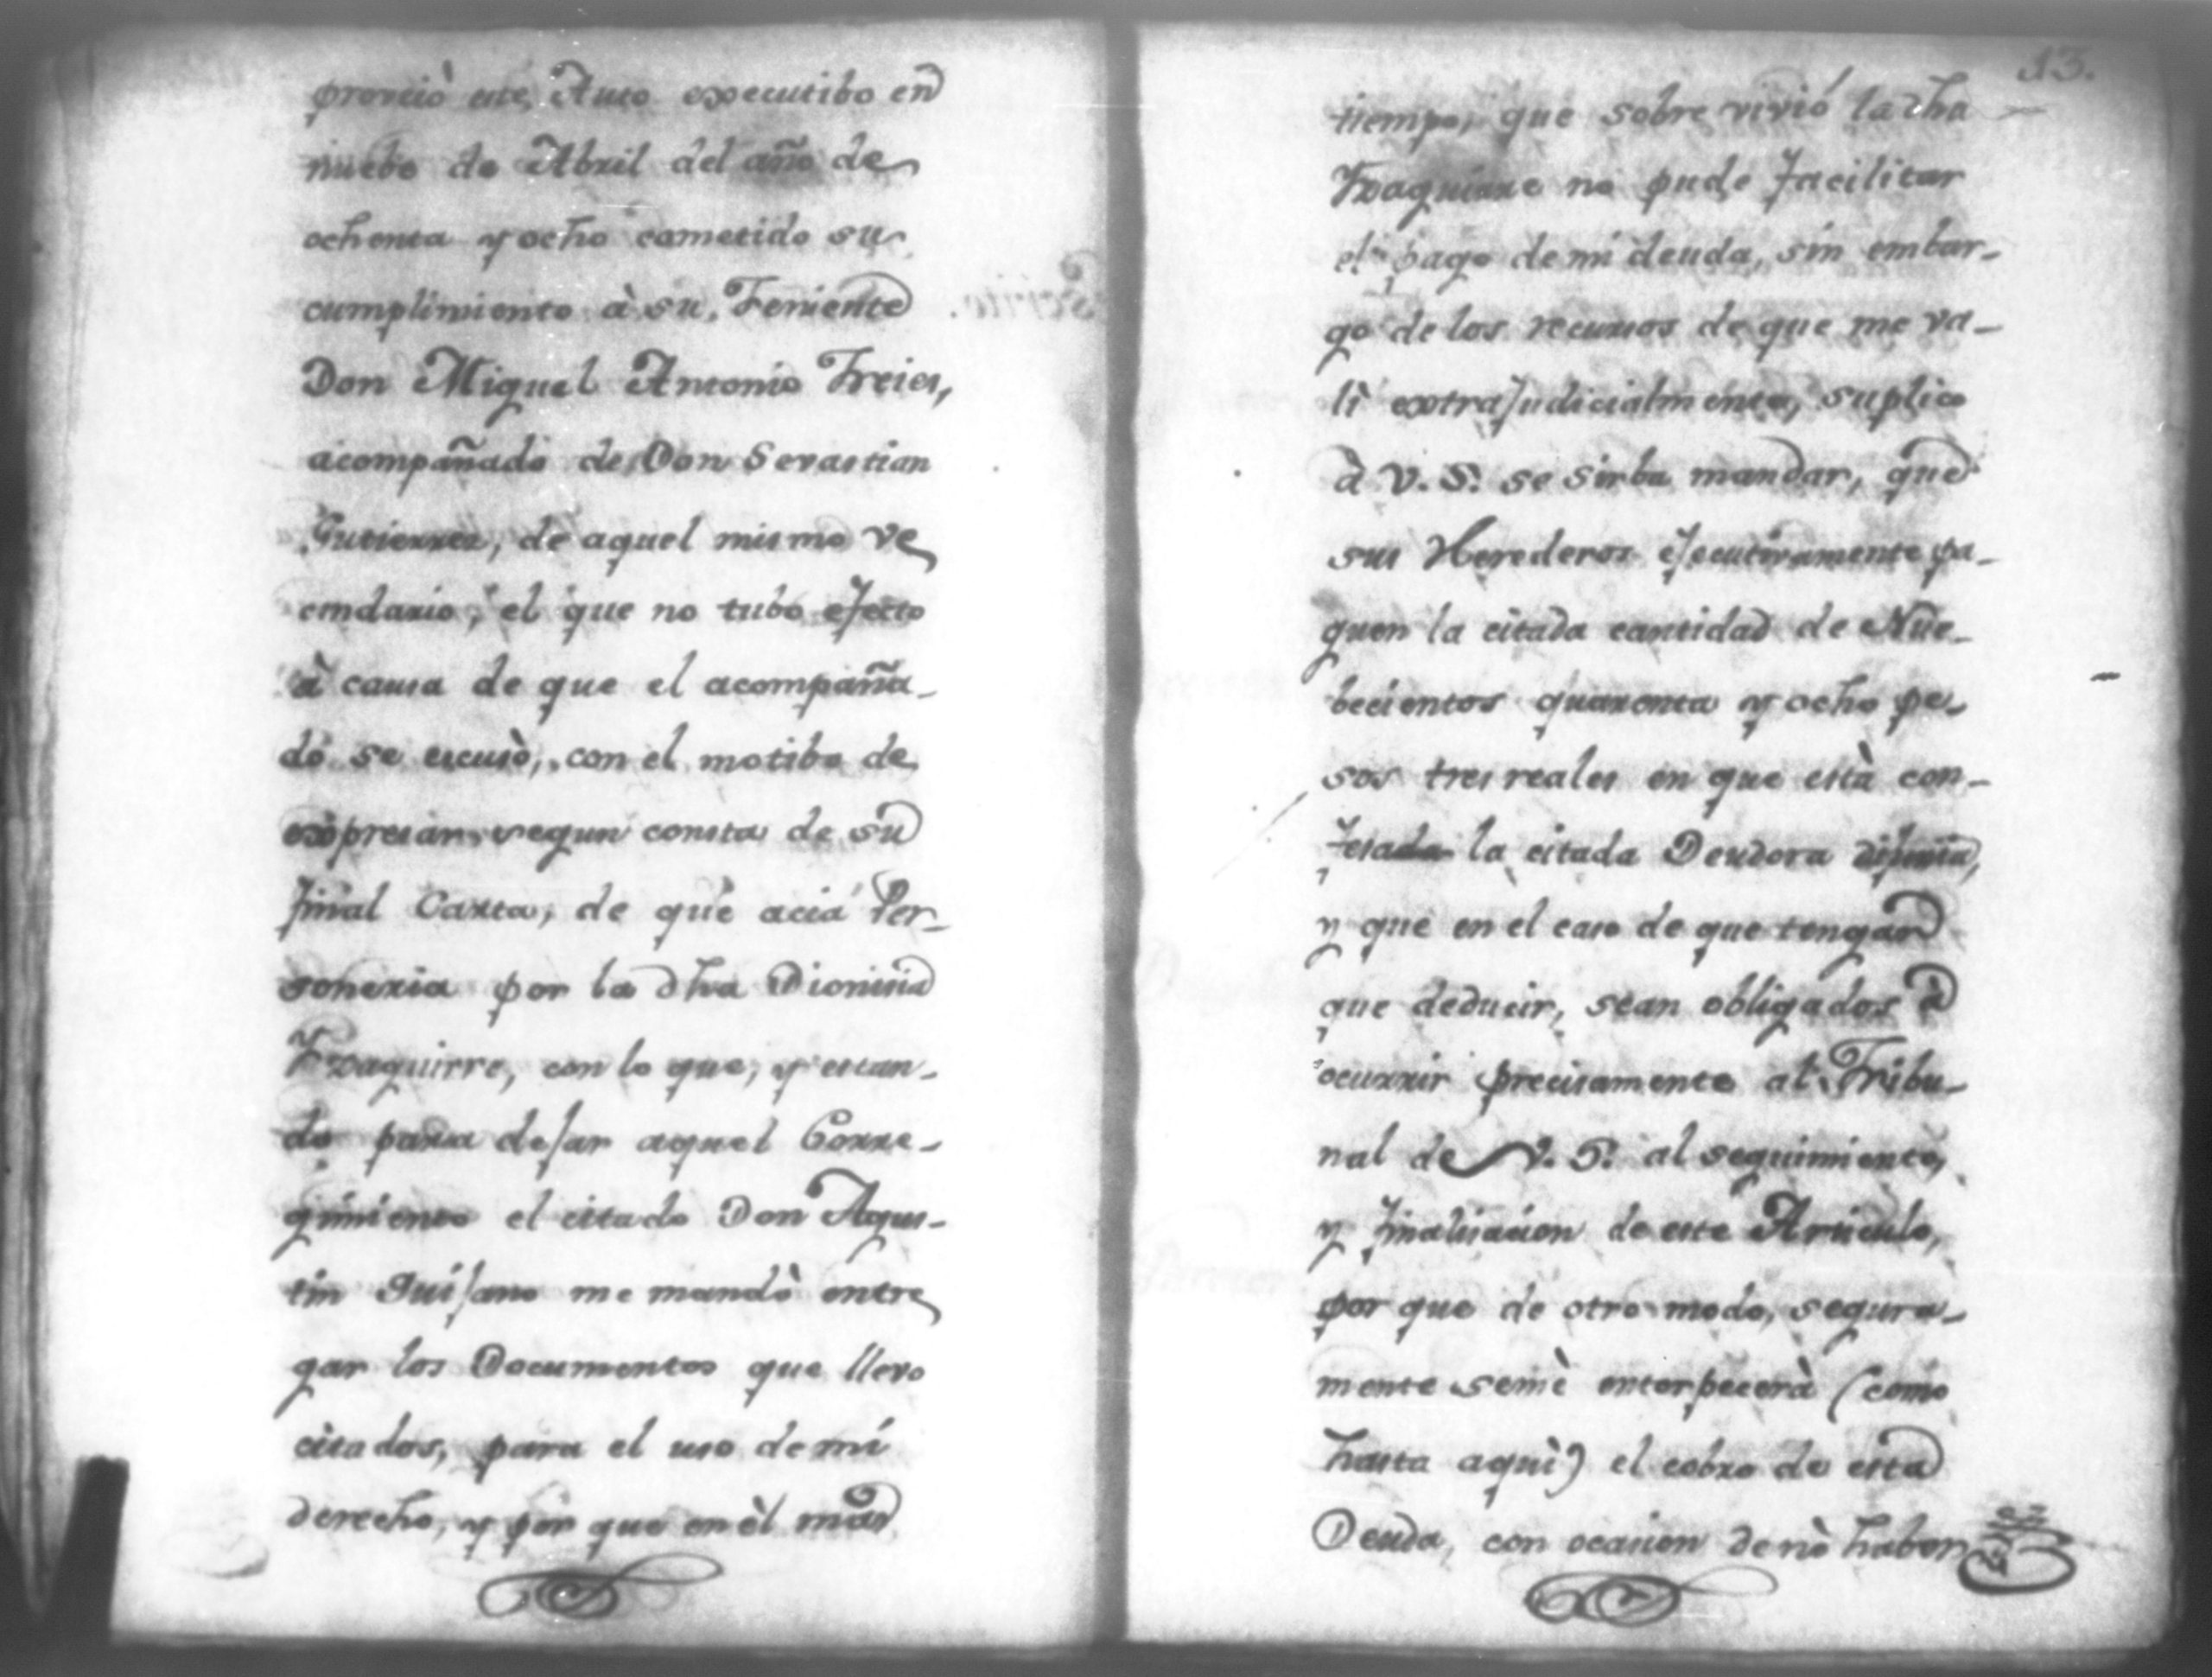 proveiò este, Auto executibo en
nuebe de Abril del año de
ochenta y ocho cometido su
cumplimiento à su Teniente
Don Miguel Antonio Freies,
acompañado de Don Sevastian
Gutierrez, de aquel mismo ve
cindario, el que no tubo efecto
à causa de que el acompaña-
do se escusò, con el motibo de
expresar segun consta de su
final Carta, de que acia Per-
soneria por la dha Dionisia
Yzaguirre, con lo que, y estan-
do para dejar aquel Corre-
gimiento el citado Don Agus-
tin Guijano me mandò entre
gar los Documentos que llevo
citados, para el uso de mi
derecho, y por que en èl mas
13.
tiempo, que sobre vivió la dha
Yzaguirre no pude facilitar
el pago de mi deuda, sin embar-
go de los recursos de que me va-
lì extrajudicialmente, suplico
à V. S. se sirba mandar, que
sus Herederos ejecutivamente pa-
guen la citada cantidad de Nue-
becientos quarenta y ocho pe-
sos tres reales en que està con-
fesada la citada Deudora difunta,
y que en el caso de que tengan
que deducir, sean obligados à
ocurrir precisamente al Tribu-
nal de V. S. al seguimiento,
y finalisacion de este Articulo,
por que de otro modo, segura-
mente semè enterpecerà (como
hasta aquì) el cobro de esta
Deuda, con ocasion de nò haber